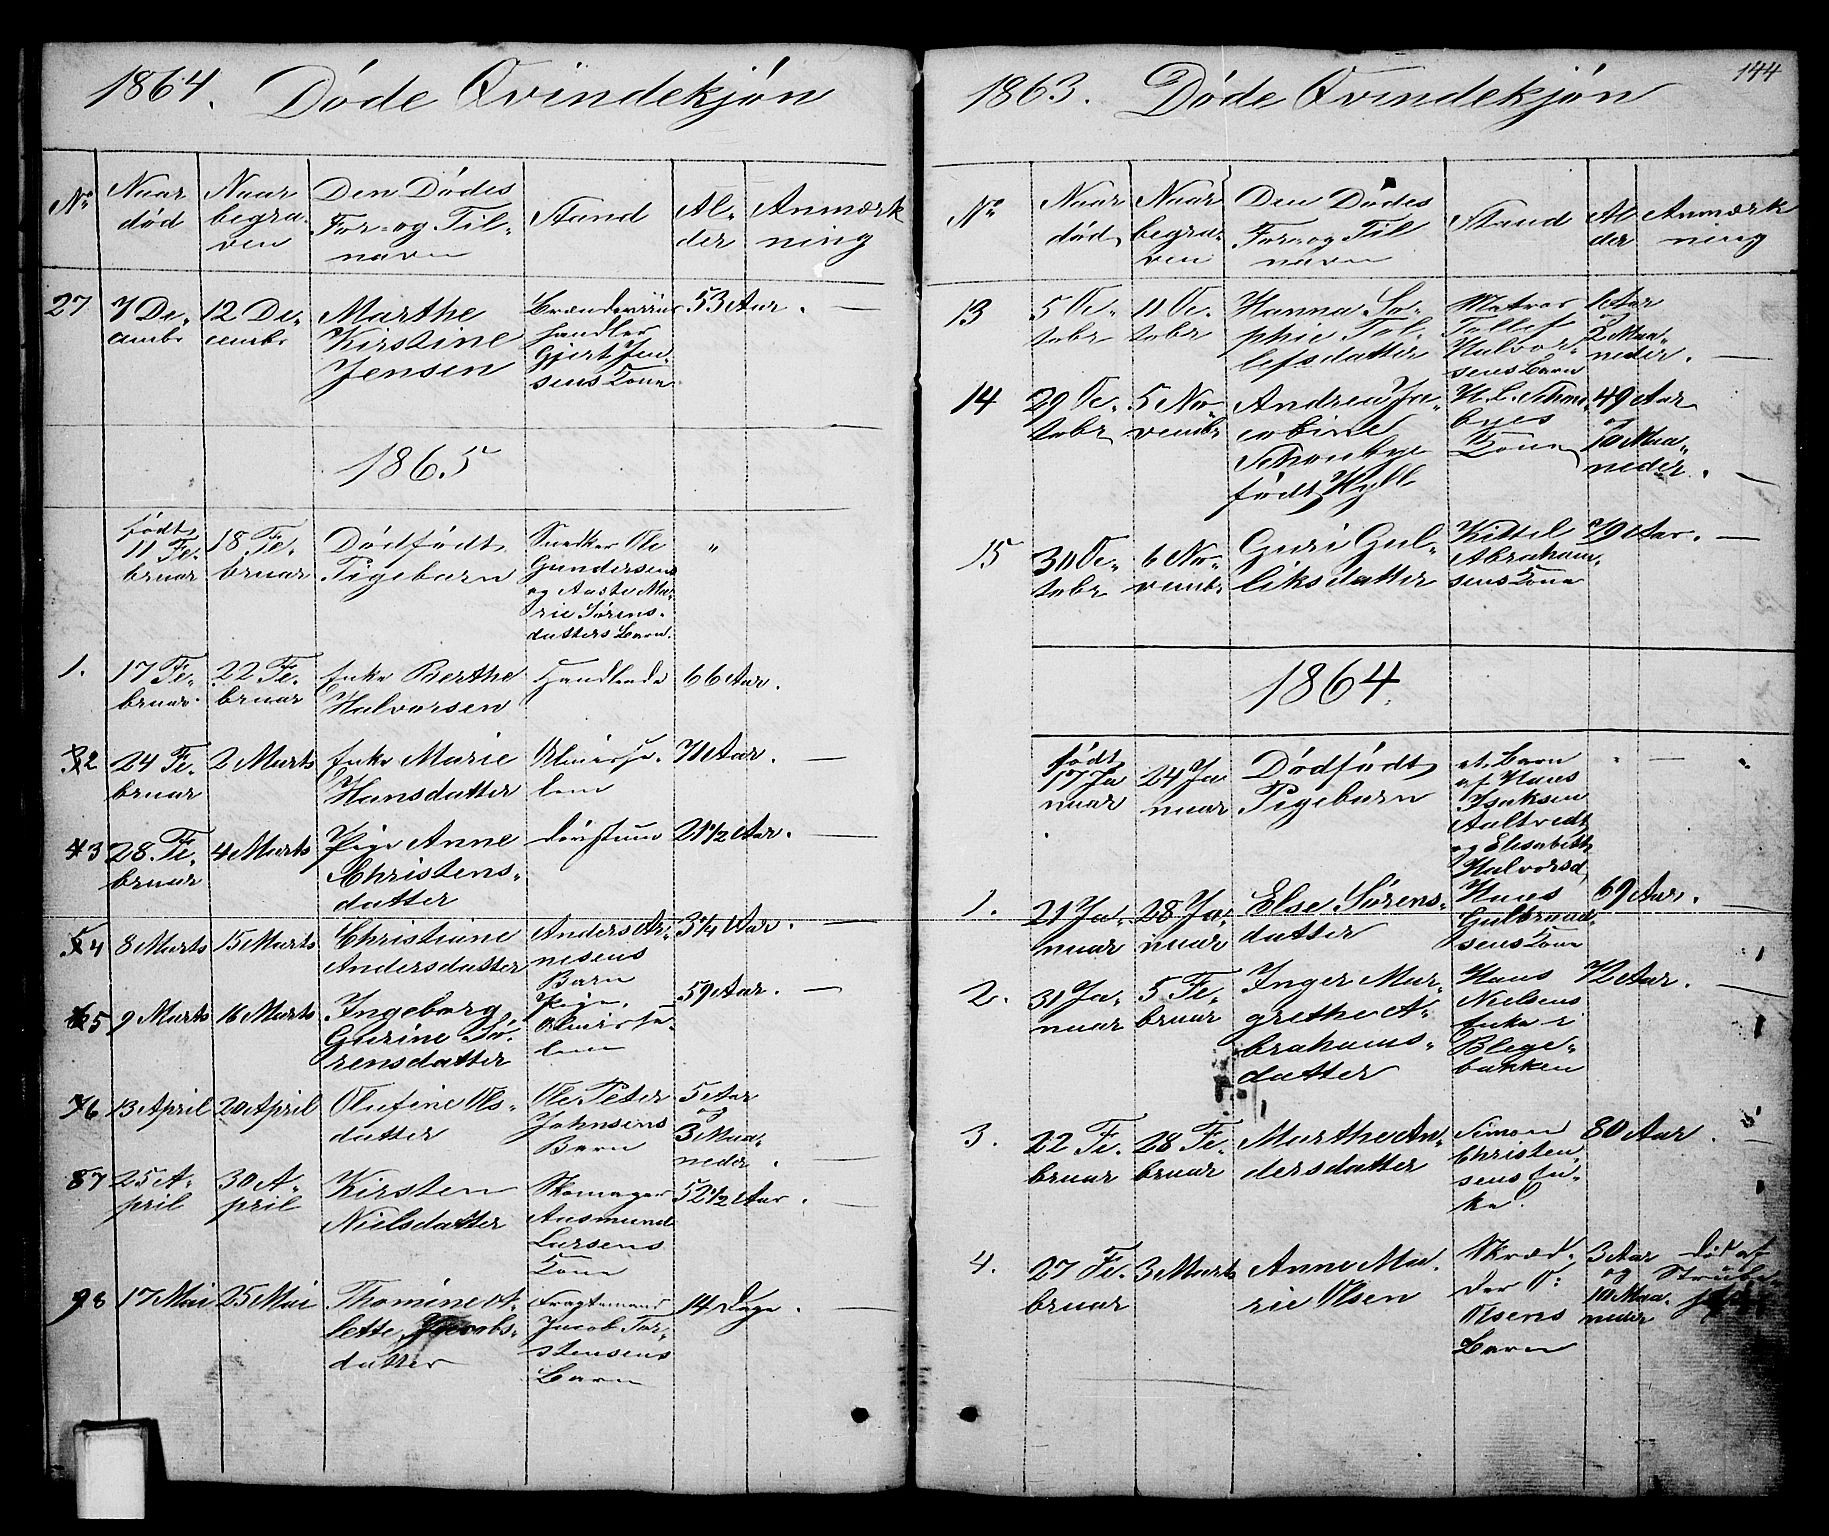 1864. Døde Qvindekjøn
No
Naar død
Naar begraven
Den Dødes For- og Tilnavn
Stand
Alder
Anmærkning
27
7 De-
cembr
12 De-
cembr
Marthe
Kirstine
Jensen
Brændeviins
handler
Gjert Jen-
sens Kone
53 Aar. —
1865
født
11 Fe-
bruar
18 Fe-
bruar
Dødfødt
Pigebarn
Snedker Ole
Gundersens
og Aaste Ma-
rie Sørens-
datters Barn.
"
1.
17 Fe-
bruar
22 Fe-
bruar
Enke Berthe
Halvorsen
Handlende
66 Aar.
2
24 Fe-
bruar
2 Marts
Enke Marie
Hansdatter
Almisse-
lem
71 Aar. —
3
28 Fe-
bruar
4 Marts
Pige Anne
Christens-
datter
21 1/2 Aar. —
4
8 Marts
15 Marts
Christiane
Andersdatter
Anders Ar-
nesens
Barn
3 1/4 Aar. —
5
9 Marts
16 Marts
Ingeborg
Gurine Sø-
rensdatter
Pige,
Almisse-
lem
59 Aar. —
6
13 April
20 April
Olufine Ols-
datter
Ole Peter
Johnsens
Barn
5 Aar
og
3 Maa-
neder. —
7
25 A-
pril
30 A-
pril
Kirsten
Nielsdatter
Skomager
Aasmund
Larsens
Kone
52 1/2 Aar. —
8
17 Mai
25 Mai
Thomine A-
lette Jacobs-
datter
Fragtemand
Jacob Tor-
stensens
Barn
14 Dage. —
144
1863. Døde Qvindekjøn
No
Naar død
Naar begraven
Den Dødes For- og Til navn
Stand
Alder
Anmærkning
13
5 Oc-
tobr
11 Oc-
tobr
Hanna So-
phie Tol-
lefsdatter
Matros
Tollef
Halvor-
sens Barn
6 Aar
og
2 Maa-
neder. —
14
29 Oc-
tobr
5 No-
vembr
Andrea Ja-
cobine
Schoubye
født Hyll
H. L. Schou-
byes
Kone
49 Aar
og
10 Maa-
neder. —
15
30 Oc-
tobr
6 No-
vembr
Guri Gul-
liksdatter
Kittel
Abraham-
sens Kone
79 Aar. —
1864.
født
17 Ja
nuar
24 Ja
nuar
Dødfødt
Pigebarn
et Barn
af Hans
Isaksen
Aaltvedt
og Elisabeth
Halvorsd.
" —
1.
21 Ja-
nuar
28 Ja-
nuar
Else Sørens-
datter
Hans
Gulbrand-
sens Kone
69 Aar. —
2.
31 Ja-
nuar
5 Fe-
bruar
Inger Mar-
grethe A-
brahams-
datter
Hans
Nielsens
Enke i
Blege-
bakken
72 Aar. —
3.
22 Fe-
bruar
28 Fe-
bruar
Marthe An-
dersdatter
Simon
Christen-
sens En-
ke.
80 Aar. —
4.
27 Fe-
bruar
3 Marts
Anne Ma-
rie Olsen
Skræd-
der O:
Olsens
Barn
3 Aar
og
10 Maa-
neder
Død af
Strube-